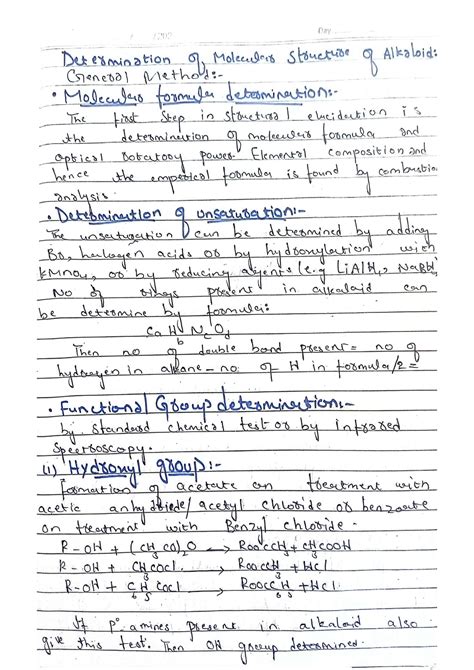 Determination of Molecular structure of Alkaloid:
General Method:-
• Molecular formula determination:-
The first step in structural elucidation is
the determination of molecular formula and
optical rotatory power. Elemental composition and
hence the empirical formula is found by combustion
analysis.
• Determination of unsaturation:-
The unsaturation can be determined by adding
Br₂, halogen acids or by hydroxylation with
KMnO₄, or by reducing agents (e.g LiAlH₄, NaBH₄)
No of rings present in alkaloid can
be determine by formula:
Ca Hb Nc Od
Then no of double bond present = no of
hydrogen in alkane - no. of H in formula/2 =
• Functional Group determination:-
by standard chemical test or by infrared
Spectroscopy.
(1) Hydroxyl group:-
Formation of acetate on treatment with
acetic anhydride/ acetyl chloride or benzoate
on treatment with Benzyl chloride.
R-OH + (CH₃CO)₂O → ROOCCH₃ + CH₃COOH
R-OH + CH₃COCl → ROOCCH₃ + HCl
R-OH + C₆H₅COCl → ROOCC₆H₅ + HCl.
If p° amines present in alkaloid also
give this test. Then OH group determined